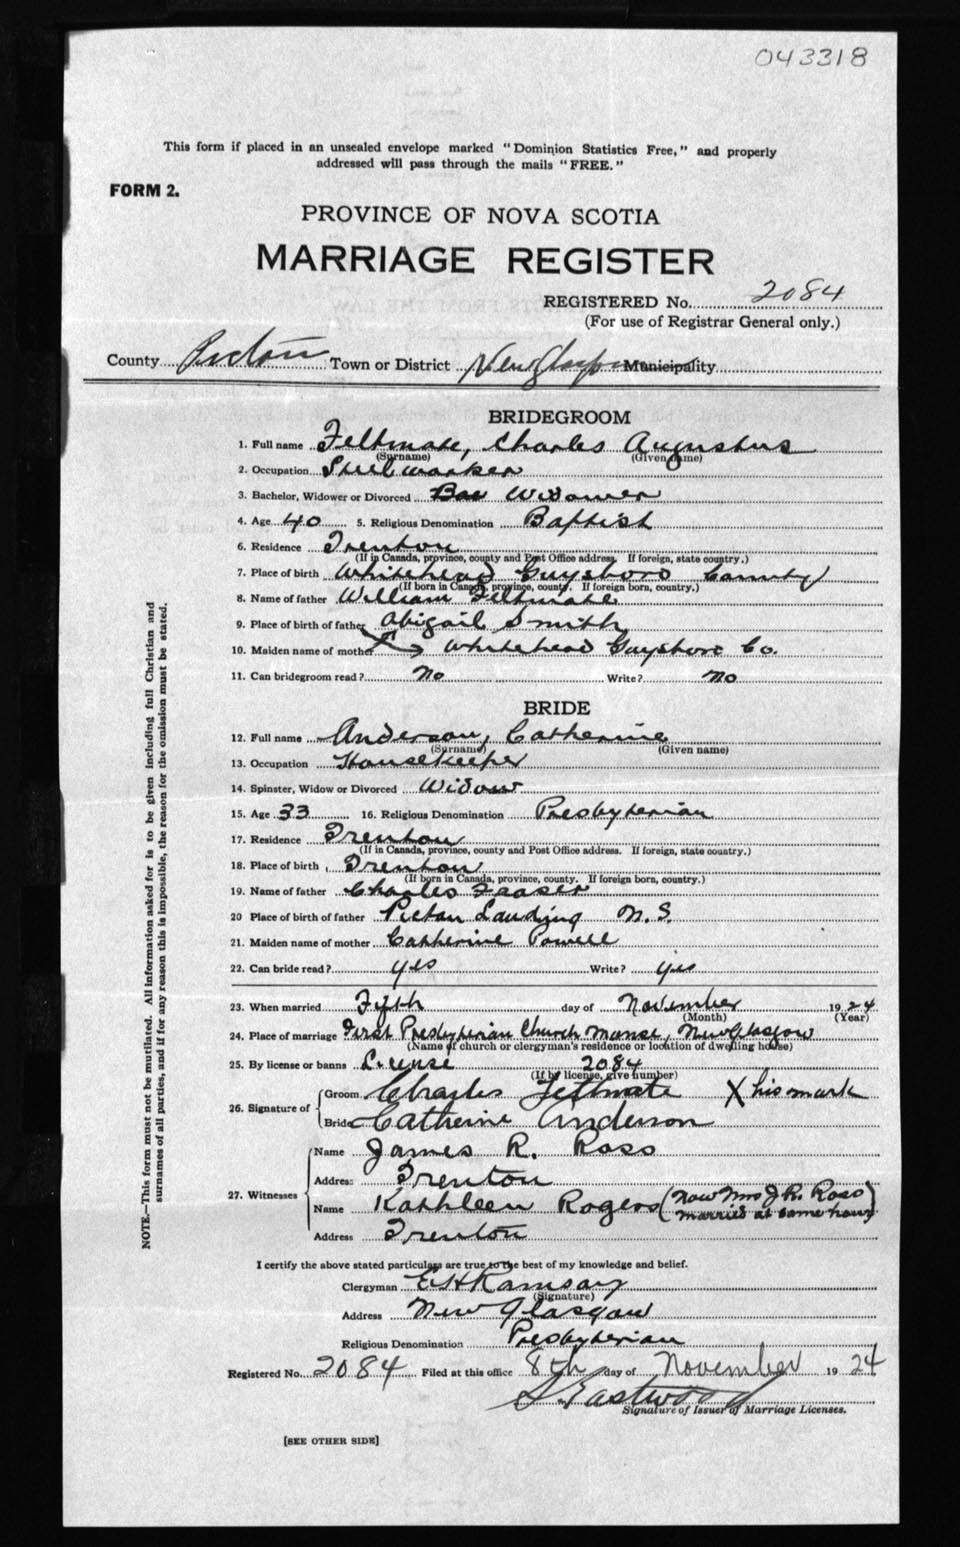 043318
This form if placed in an unsealed envelope marked "Dominion Statistics Free," and properly
addressed will pass through the mails "FREE."
FORM 2.
PROVINCE OF NOVA SCOTIA
MARRIAGE REGISTER
REGISTERED No. 2084
(For use of Registrar General only.)
County Pictou Town or District New Glasgow Municipality
BRIDEGROOM
1. Full name Feltmate, Charles Augustus
(Surname) (Given name)
2. Occupation Steelworker
3. Bachelor, Widower or Divorced Bac Widower
4. Age 40 5. Religious Denomination Baptist
6. Residence Trenton
(If in Canada, province, county and Post Office address. If foreign, state country.)
7. Place of birth Whitehead Guysboro County
(If born in Canada, province, county. If foreign born, country.)
8. Name of father William Feltmate
9. Place of birth of father Abigail Smith
10. Maiden name of mother Whitehead Guysboro Co.
11. Can bridegroom read? No Write? No
BRIDE
12. Full name Anderson, Catherine
(Surname) (Given name)
13. Occupation Housekeeper
14. Spinster, Widow or Divorced Widow
15. Age 33 16. Religious Denomination Presbyterian
17. Residence Trenton
(If in Canada, province, county and Post Office address. If foreign, state country.)
18. Place of birth Trenton
(If born in Canada, province, county. If foreign born, country.)
19. Name of father Charles Fraser
20 Place of birth of father Pictou Landing N.S.
21. Maiden name of mother Catherine Powell
22. Can bride read? yes Write? yes
23. When married Fifth day of November 1924
(Month) (Year)
24. Place of marriage First Presbyterian Church Manse, New Glasgow
(Name of church or clergyman's residence or location of dwelling house)
25. By license or banns License 2084
(If by license, give number)
26. Signature of Groom Charles Feltmate X his mark
Bride Catherine Anderson
27. Witnesses Name James R. Ross
Address Trenton
Name Kathleen Rogers (Now Mrs J.R. Ross married at same hour)
Address Trenton
I certify the above stated particulars are true to the best of my knowledge and belief.
Clergyman E H Ramsay
(Signature)
Address New Glasgow
Religious Denomination Presbyterian
Registered No. 2084 Filed at this office 8th day of November 1924
S. Eastwood
Signature of Issuer of Marriage Licenses.
[SEE OTHER SIDE]
NOTE.—This form must not be mutilated. All information asked for is to be given including full Christian and
surnames of all parties, and if for any reason this is impossible, the reason for the omission must be stated.